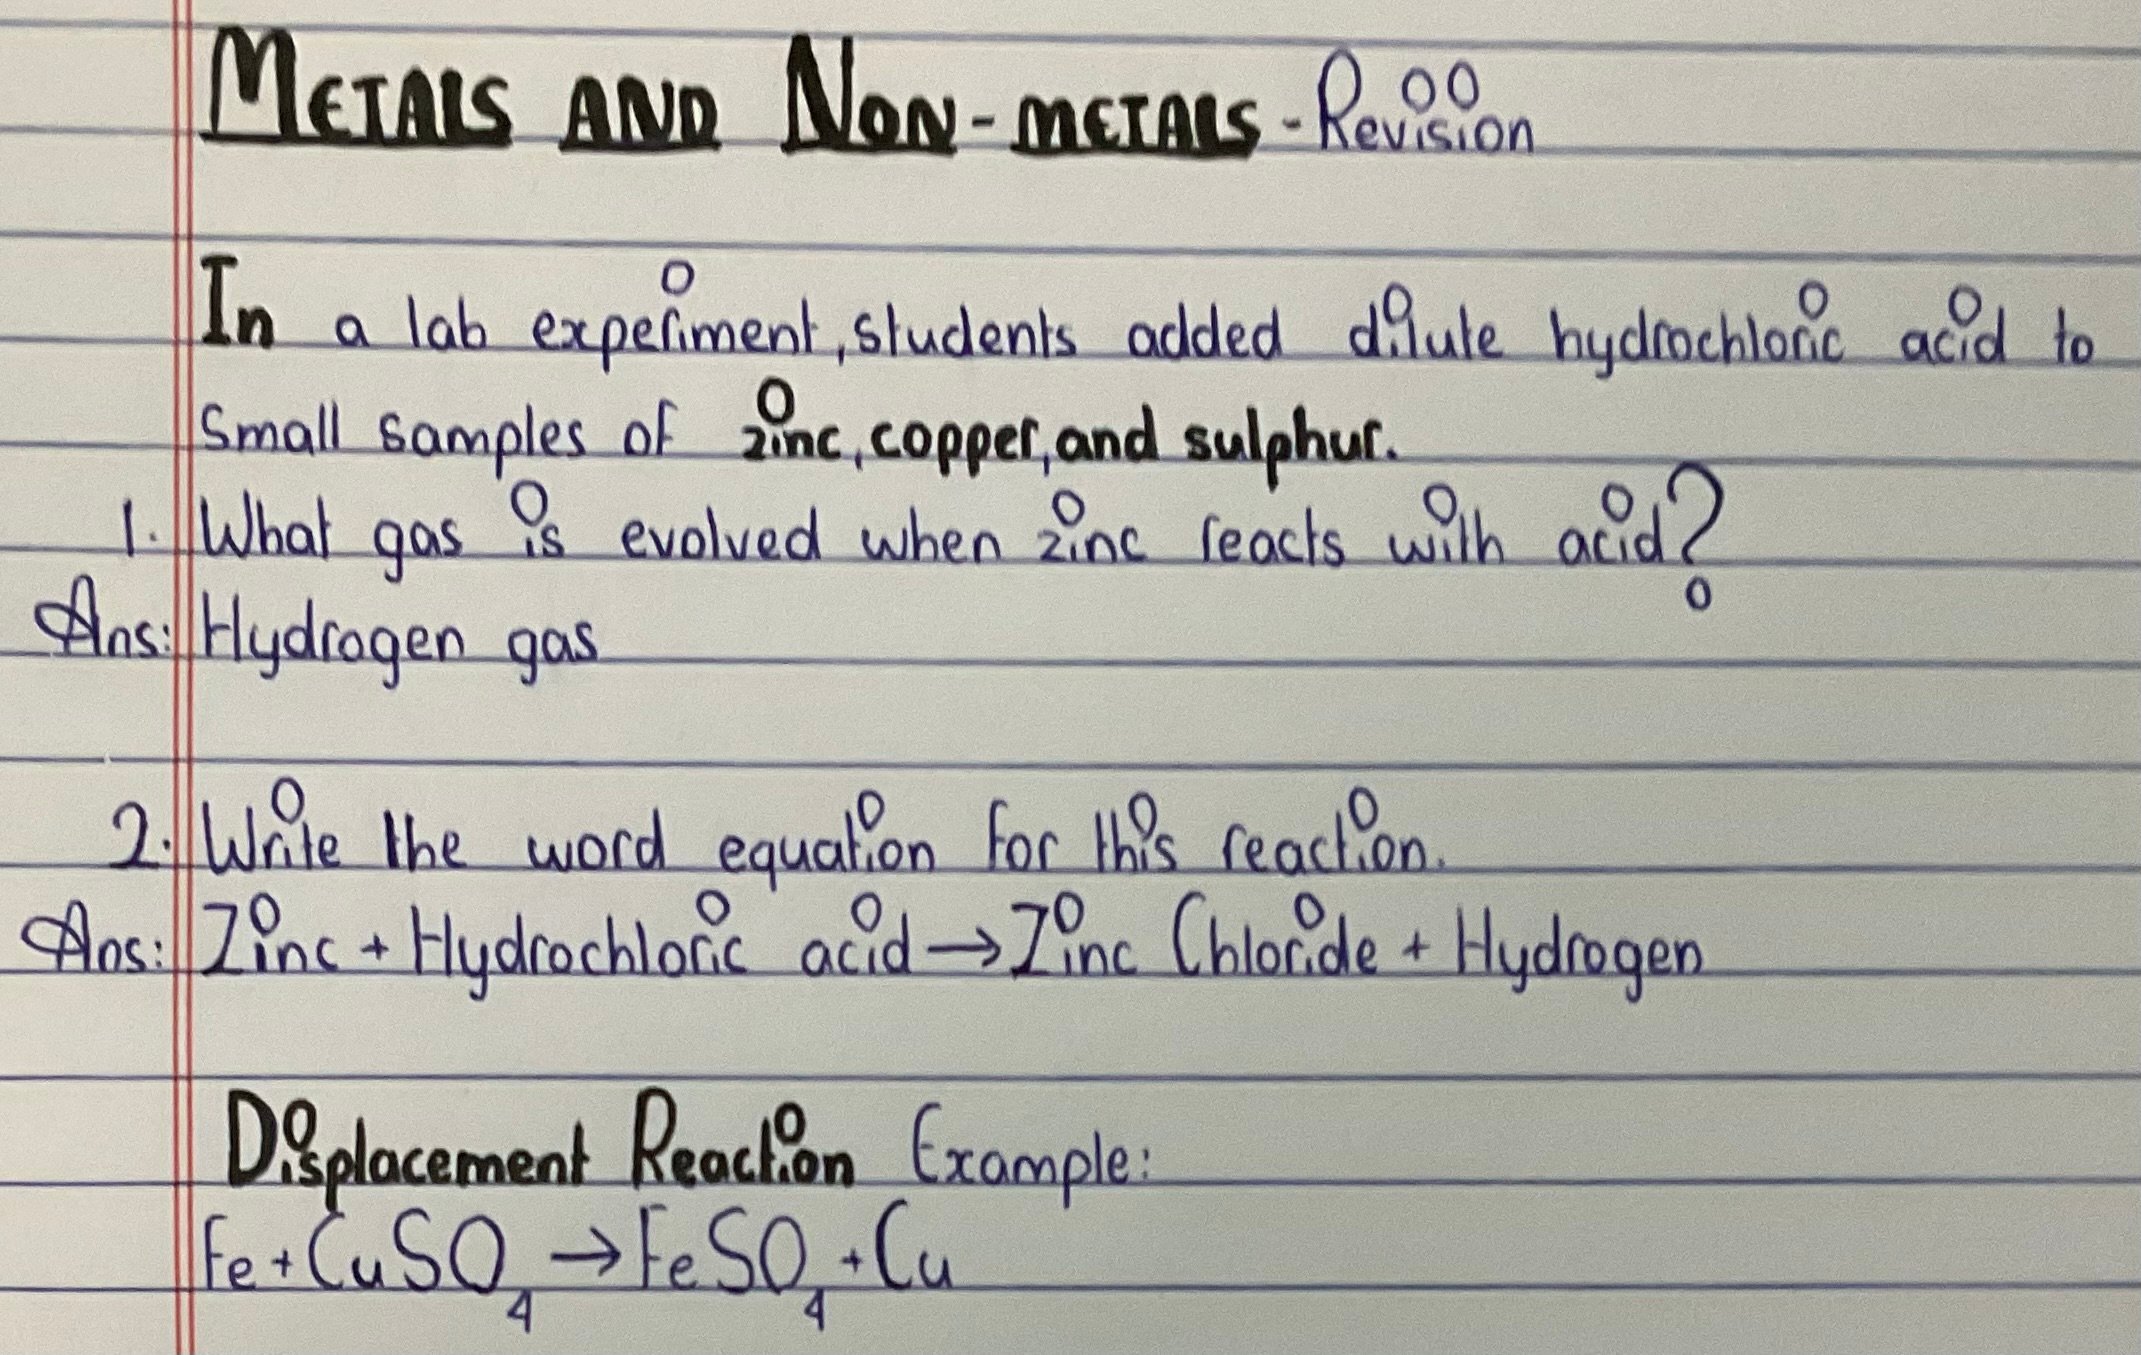 METALS AND NON-METALS - Revision
In a lab experiment, students added dilute hydrochloric acid to
small samples of zinc, copper, and sulphur.
1. What gas is evolved when zinc reacts with acid?
Ans: Hydrogen gas
2. Write the word equation for this reaction.
Ans: Zinc + Hydrochloric acid → Zinc Chloride + Hydrogen
Displacement Reaction Example:
Fe + CuSO₄ → FeSO₄ + Cu